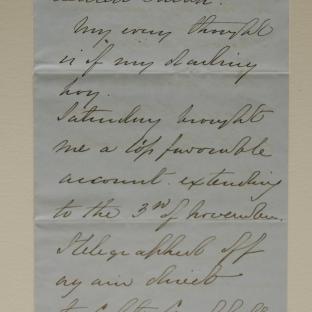 My every thought
is of my darling
boy.
Saturday brought
me a less favourable
account. extending
to the 3rd of november.
I telegraphed off
again direct
to